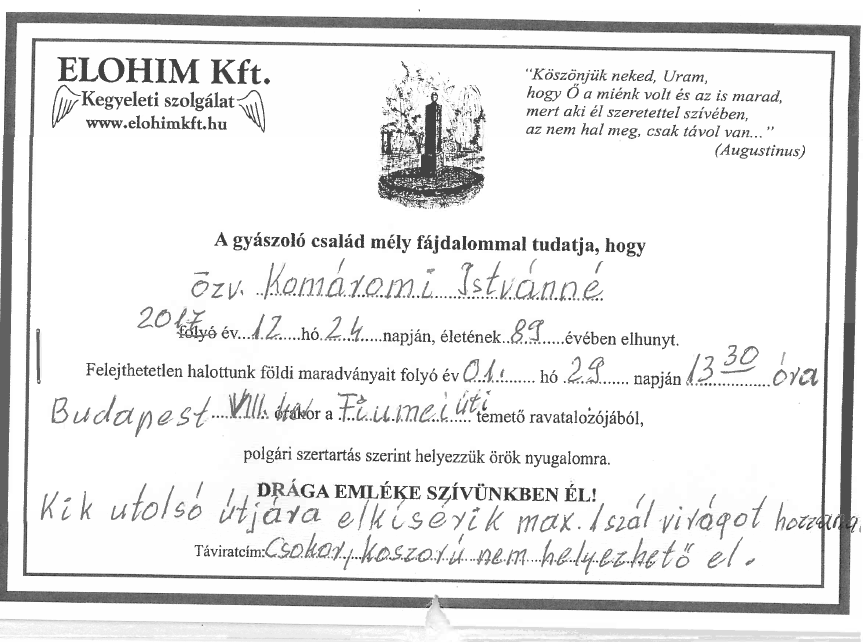 ELOHIM Kft.
Kegyeleti szolgálat
www.elohimkft.hu
"Köszönjük neked, Uram,
hogy Ő a miénk volt és az is marad,
mert aki él szeretettel szívében,
az nem hal meg, csak távol van..."
(Augustinus)
A gyászoló család mély fájdalommal tudatja, hogy
özv. Komáromi Istvánné
2017 folyó év 12 hó 24 napján, életének 89 évében elhunyt.
Felejthetetlen halottunk földi maradványait folyó év 01. hó 29 napján 13 30 óra
Budapest VIII. ker órakor a Fiumei úti temető ravatalozójából,
polgári szertartás szerint helyezzük örök nyugalomra.
DRÁGA EMLÉKE SZÍVÜNKBEN ÉL!
Kik utolsó útjára elkísérik max. 1 szál virágot
Táviratcím: Csokor, koszorú nem helyezhető el.